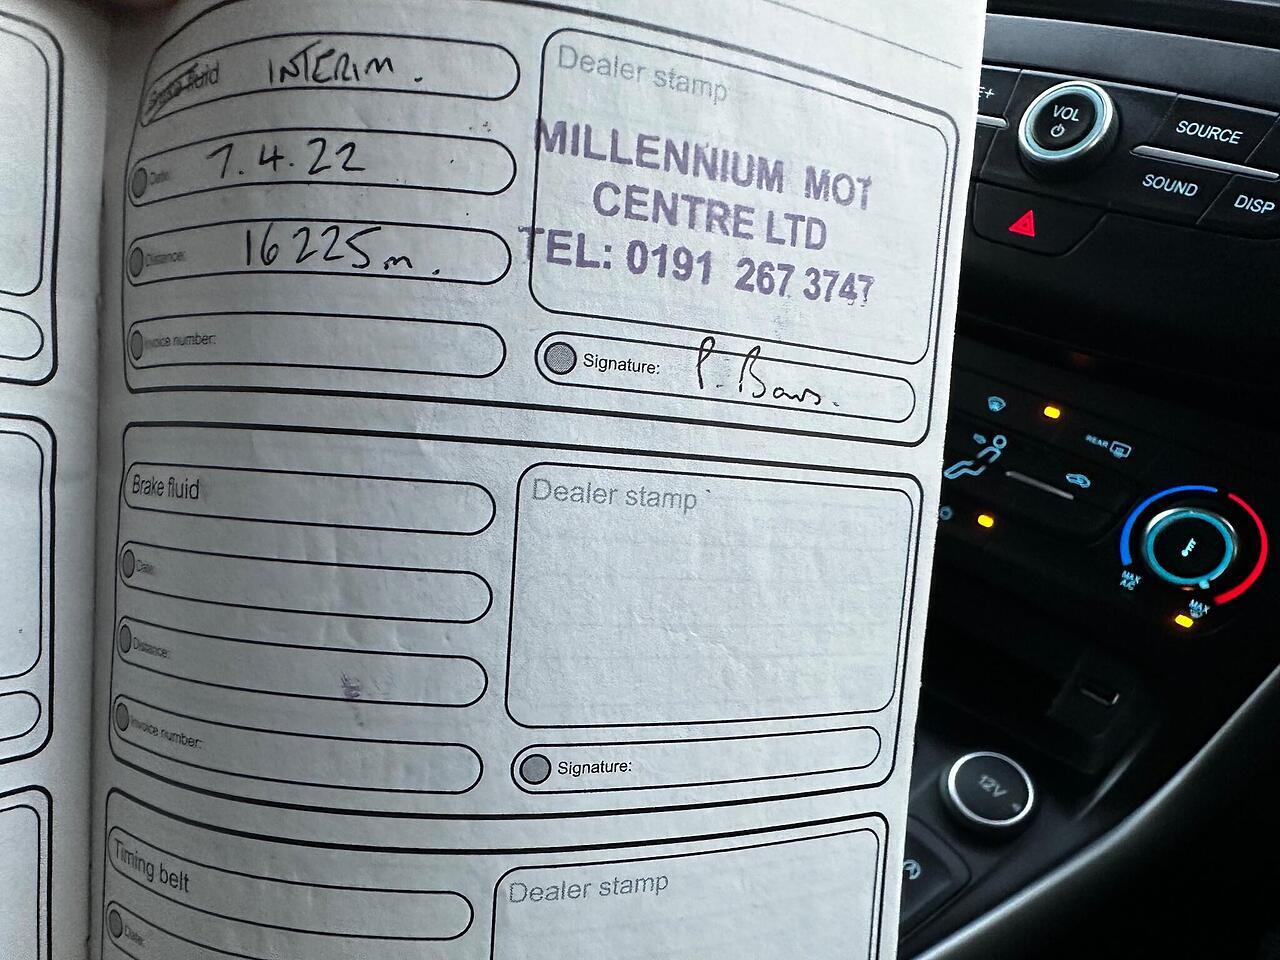 Brake fluid INTERIM.
Date: 7.4.22
Distance: 16225m.
Invoice number:
Dealer stamp
MILLENNIUM MOT
CENTRE LTD
TEL: 0191 267 3747
Signature: P. Baws.
Brake fluid
Date:
Distance:
Invoice number:
Dealer stamp
Signature:
Timing belt
Date:
Dealer stamp
VOL
SOURCE
SOUND
DISP
REAR
MAX
A/C
MAX
12V